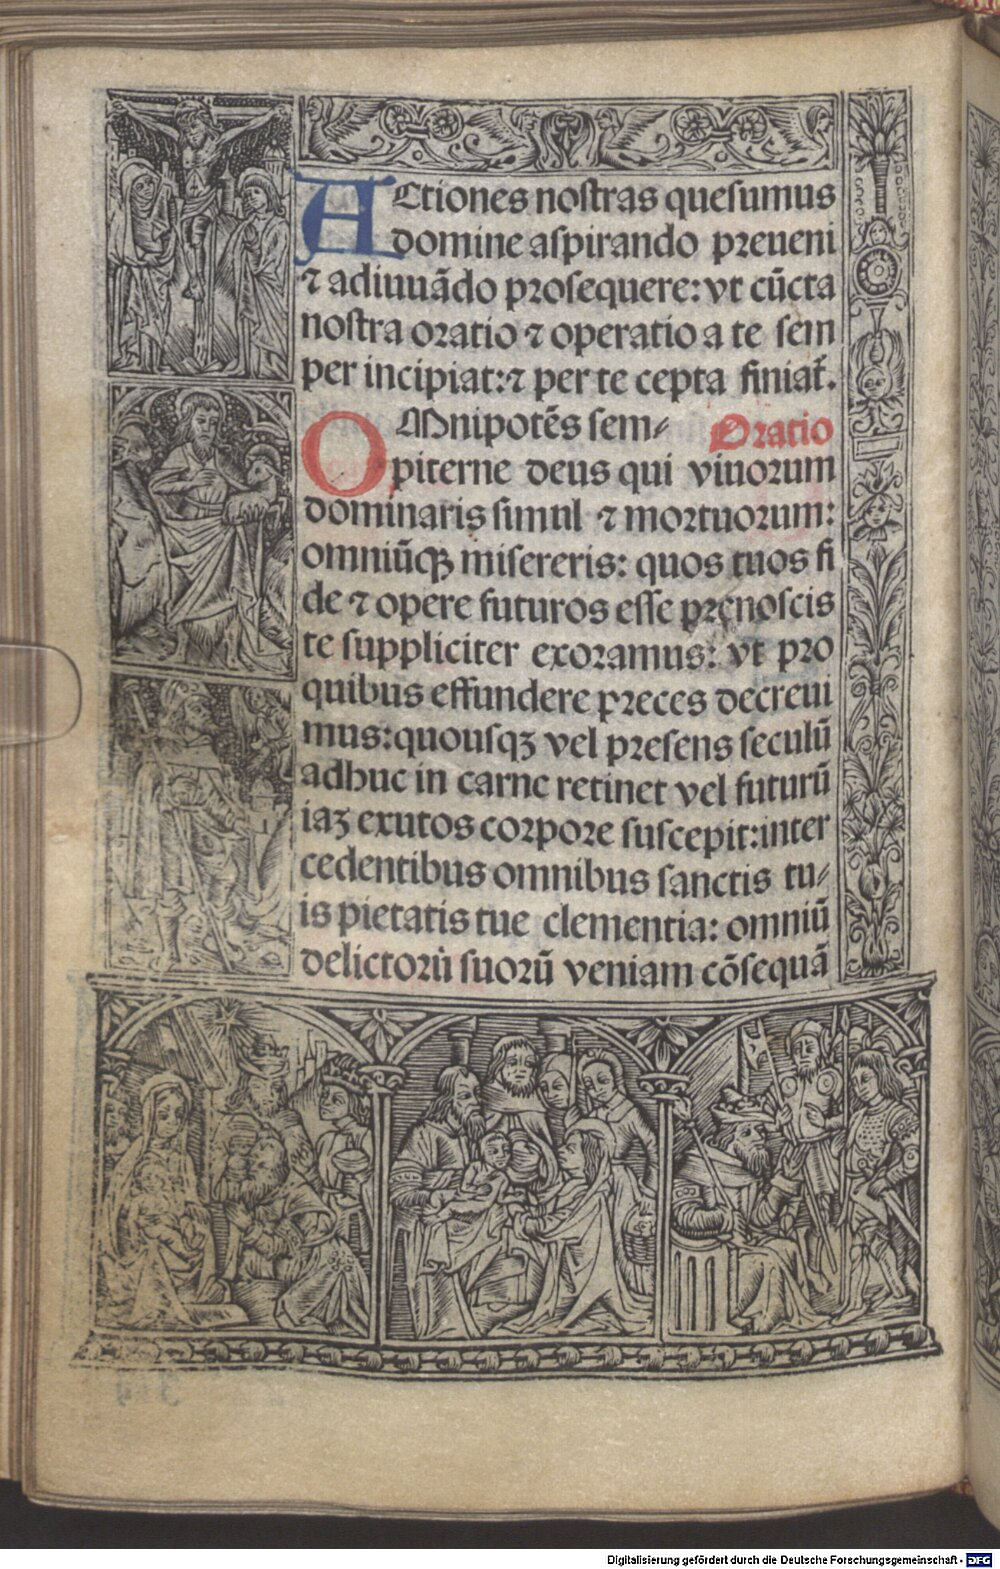 Actiones nostras quesumus
domine aspirando preueni
⁊ adiuuādo prosequere: vt cūcta
nostra oratio ⁊ operatio a te sem
per incipiat:⁊ per te cepta finiat̃.
OMnipotēs sem⸗ Oratio
piterne deus qui viuorum
dominaris simul ⁊ mortuorum:
omniūqꝫ misereris: quos tuos fi
de ⁊ opere futuros esse prenoscis
te suppliciter exoramus: vt pro
quibus effundere preces decreui
mus:quousqꝫ vel presens seculū
adhuc in carne retinet vel futurū
iaꝫ exutos corpore suscepit:inter
cedentibus omnibus sanctis tu⸗
is pietatis tue clementia: omniū
delictorū suorū veniam cōsequā
Digitalisierung gefördert durch die Deutsche Forschungsgemeinschaft - DFG